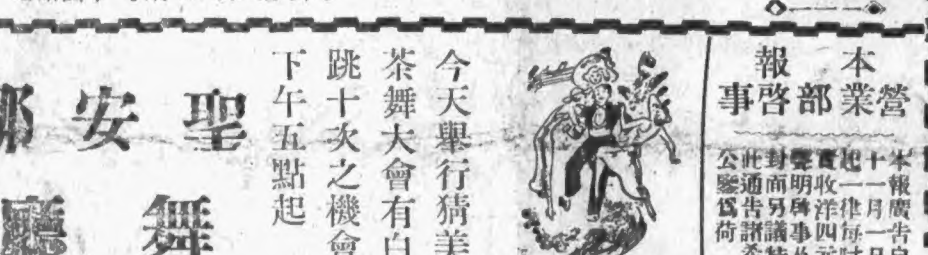 本報
營業部啓事
本報廣告自
十一月一日
起一律每
實收洋四元
聲明啓事
對面另議
此通告諸希
公鑒爲荷
今天舉行猜美
茶舞大會有白
跳十次之機會
下午五點起
聖安娜
舞廳